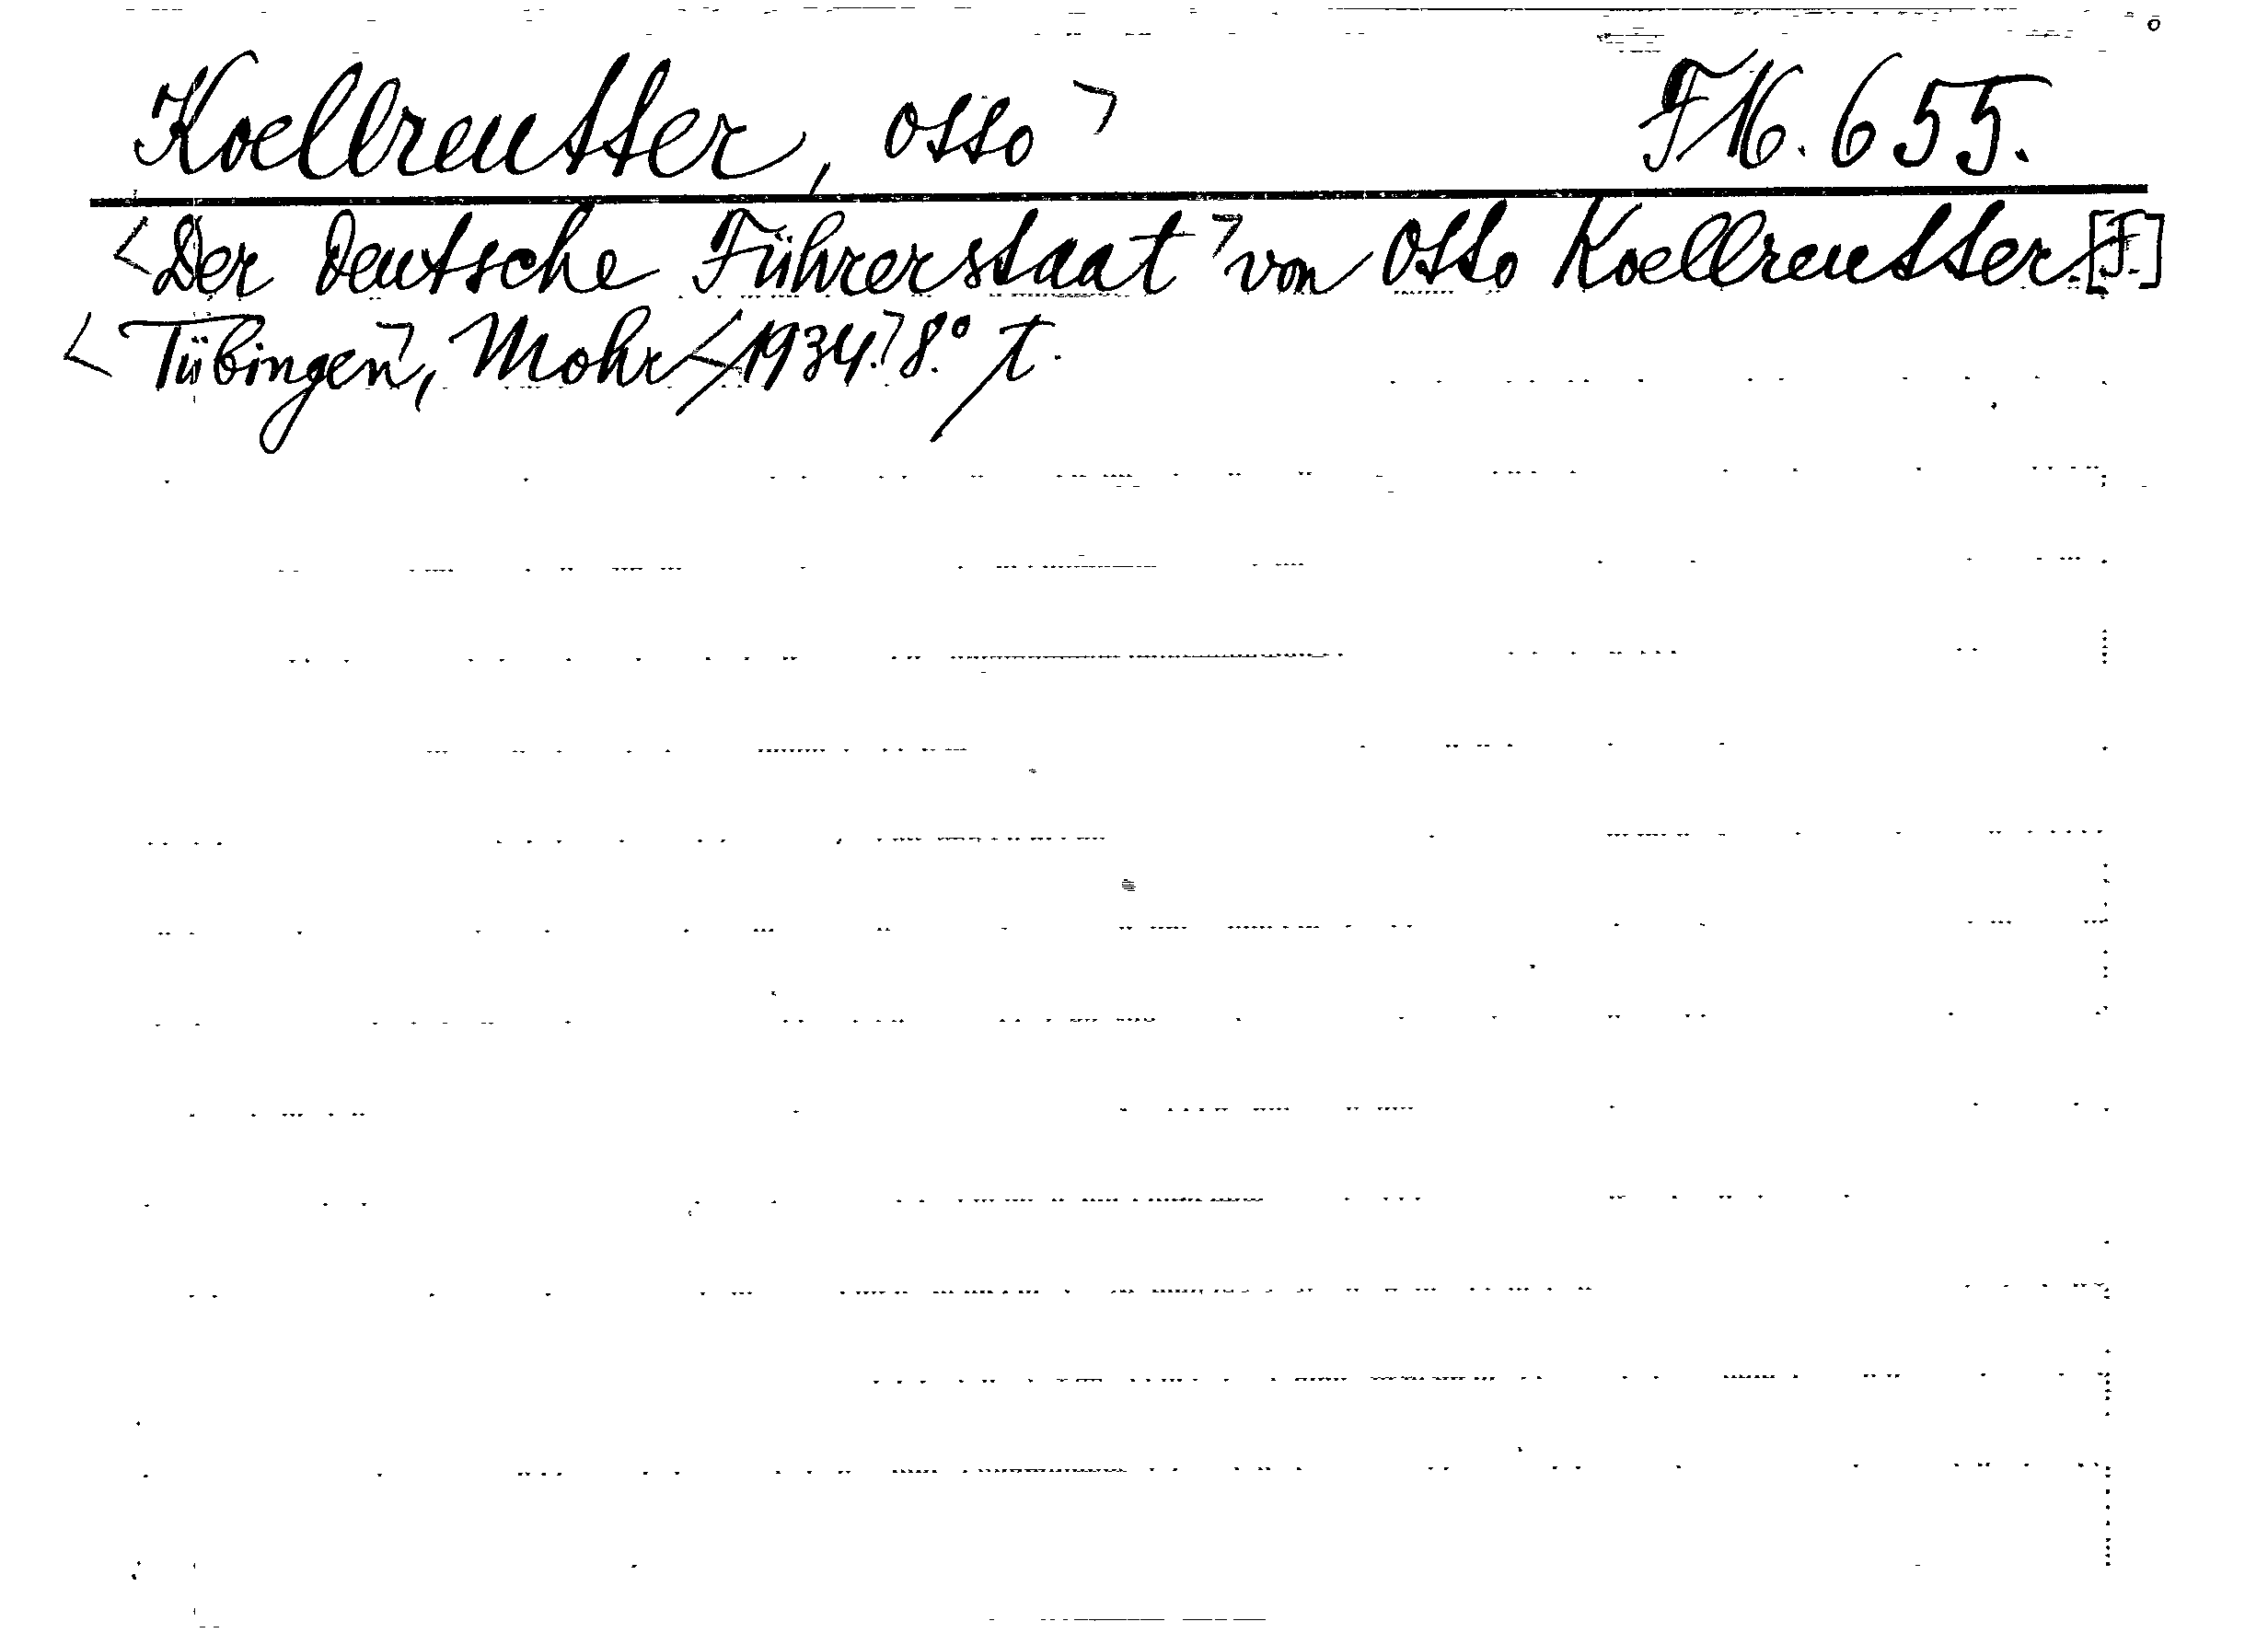 Koellreutter, Otto> F16.655.
<Der Deutsche Führerstaat> von Otto Koellreutter. [F.]
<Tübingen>, Mohr <1934.> 8.° T.